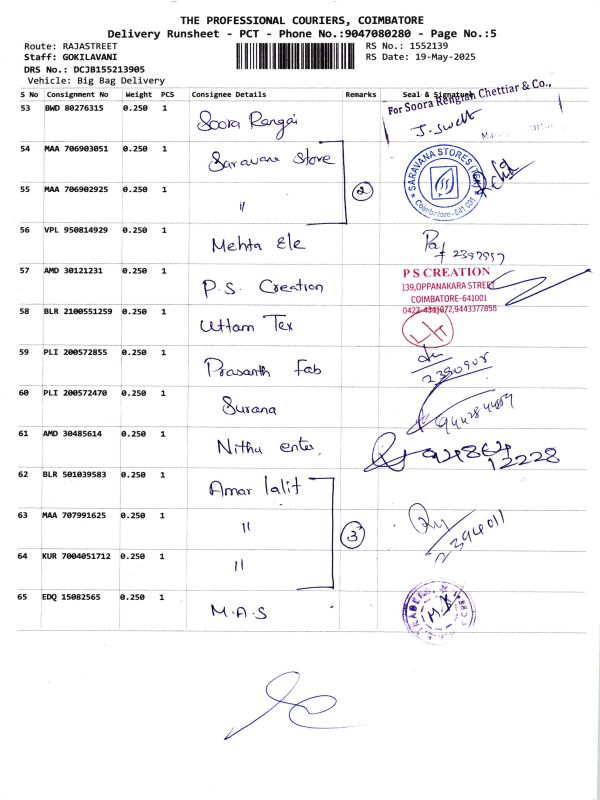 THE PROFESSIONAL COURIERS, COIMBATORE
Delivery Runsheet - PCT - Phone No.:9047080280 - Page No.:5
Route: RAJASTREET RS No.: 1552139
Staff: GOKILAVANI RS Date: 19-May-2025
DRS No.: DCJB155213905
Vehicle: Big Bag Delivery
S No Consignment No Weight PCS Consignee Details Remarks Seal & Signature
For Soora Rengiah Chettiar & Co.,
53 BWD 80276315 0.250 1 Soora Rangai
54 MAA 706903051 0.250 1 Saravana Store
SARAVANA STORES (TEX)
Coimbatore-641 001
55 MAA 706902925 0.250 1 " 2
56 VPL 950814929 0.250 1 Mehta Ele
57 AMD 30121231 0.250 1 P.S. Creation
P S CREATION
139,OPPANAKARA STREET
COIMBATORE-641001
58 BLR 2100551259 0.250 1 Uttam Tex
59 PLI 200572855 0.250 1 Prasanth Fab
2390908
60 PLI 200572470 0.250 1 Surana
61 AMD 30485614 0.250 1 Nithu enter.
94864
12228
62 BLR 501039583 0.250 1 Amar lalit
63 MAA 707991625 0.250 1 " 3
2394011
64 KUR 7004051712 0.250 1 "
65 EDQ 15082565 0.250 1 M.A.S